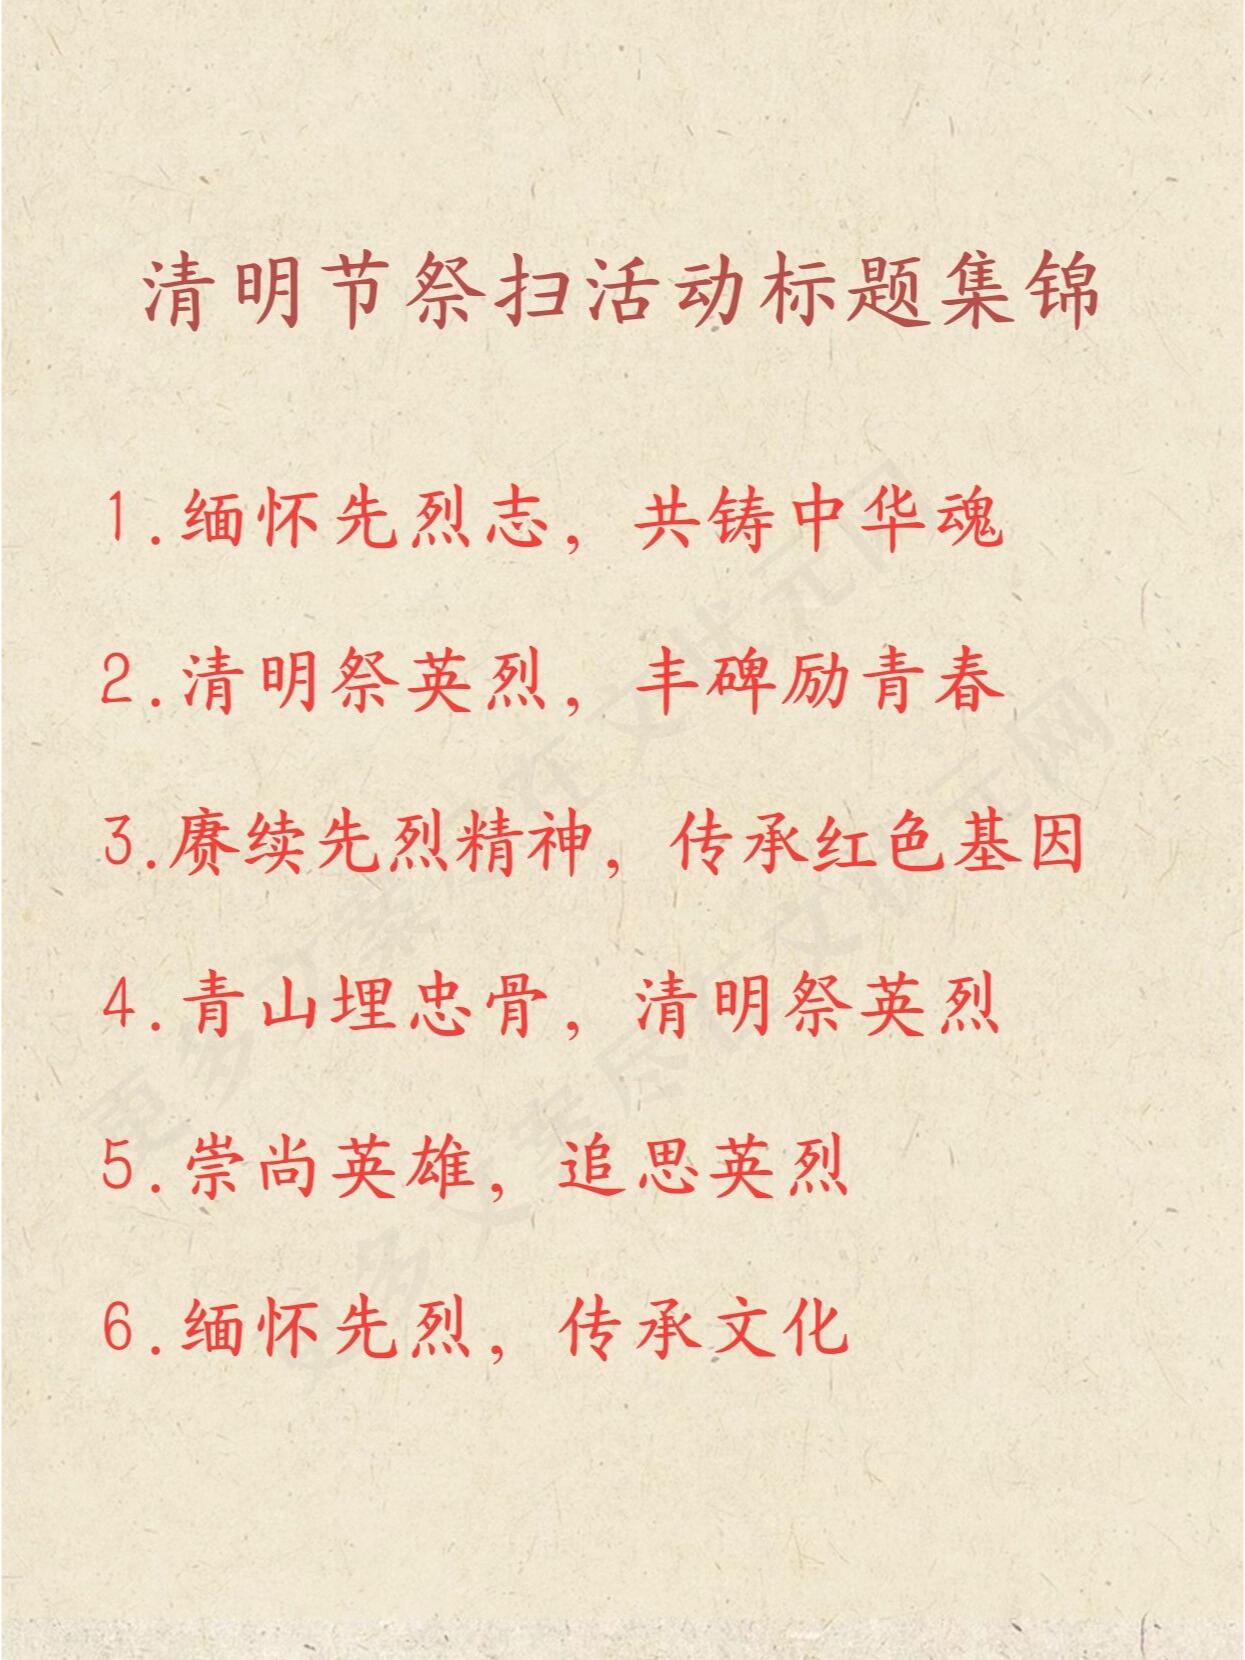 清明节祭扫活动标题集锦
1.缅怀先烈志，共铸中华魂
2.清明祭英烈，丰碑励青春
3.赓续先烈精神，传承红色基因
4.青山埋忠骨，清明祭英烈
5.崇尚英雄，追思英烈
6.缅怀先烈，传承文化